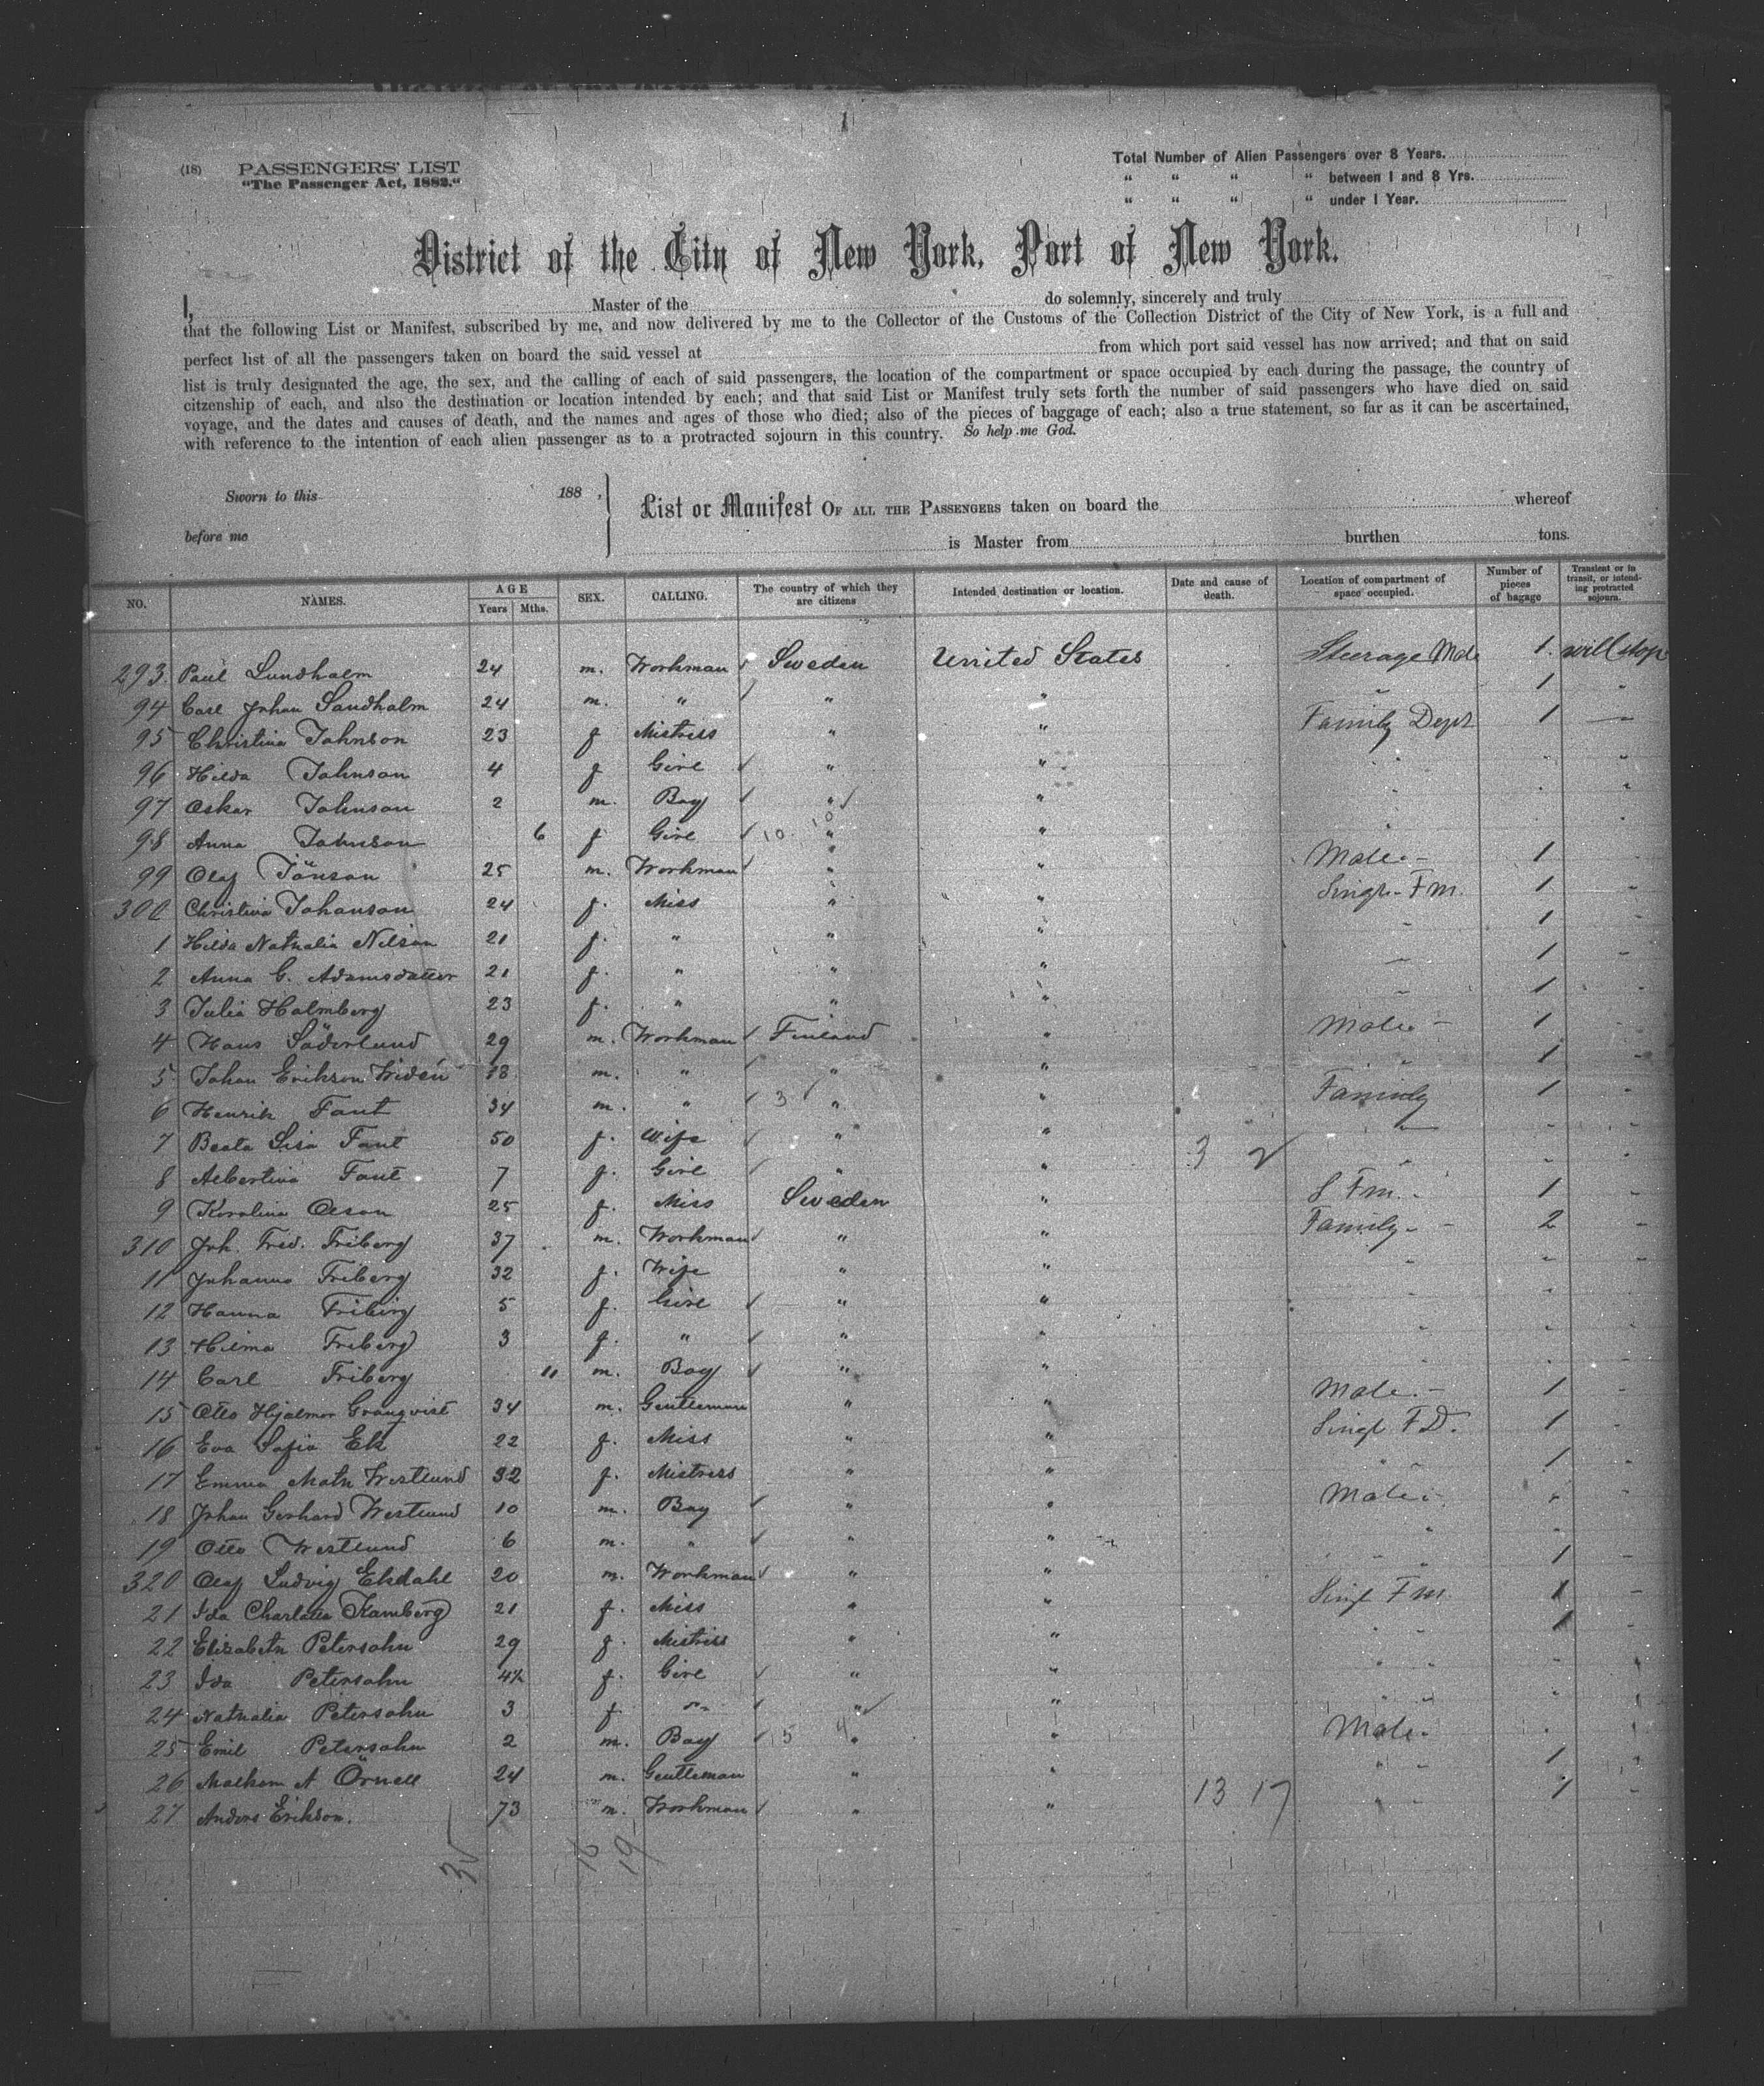 (18) PASSENGERS' LIST
"The Passenger Act, 1882."
Total Number of Alien Passengers over 8 Years.
" " " " between 1 and 8 Yrs.
" " " " under 1 Year.
District of the City of New York, Port of New York.
I, Master of the do solemnly, sincerely and truly
that the following List or Manifest, subscribed by me, and now delivered by me to the Collector of the Customs of the Collection District of the City of New York, is a full and
perfect list of all the passengers taken on board the said vessel at from which port said vessel has now arrived; and that on said
list is truly designated the age, the sex, and the calling of each of said passengers, the location of the compartment or space occupied by each during the passage, the country of
citzenship of each, and also the destination or location intended by each; and that said List or Manifest truly sets forth the number of said passengers who have died on said
voyage, and the dates and causes of death, and the names and ages of those who died; also of the pieces of baggage of each; also a true statement, so far as it can be ascertained,
with reference to the intention of each alien passenger as to a protracted sojourn in this country. So help me God.
Sworn to this 188 ,
before me
List or Manifest OF ALL THE PASSENGERS taken on board the whereof
is Master from burthen tons.
NO. NAMES. AGE Years Mths. SEX. CALLING. The country of which they are citizens Intended destination or location. Date and cause of death. Location of compartment of space occupied. Number of pieces of bagage Transient or in transit, or intending protracted sojourn.
293 Paul Lundholm 24 m. Workman Sweden United States Steerage Male 1. will stop
94 Carl Johan Sandholm 24 m. " " " " 1 "
95 Christina Johnson 23 f Mistress " " Family Dept 1 "
96 Hilda Johnson 4 f Girl " " " " "
97 Oskar Johnson 2 m. Boy " " " " "
98 Anna Johnson 6 f Girl 10 10 " " " "
99 Olaf Jönson 25 m. Workman " " Male. - 1 "
300 Christina Johanson 24 f. Miss " " Singl. Fm. 1 "
1 Hilda Nathalia Nilson 21 f. " " " " 1
2 Anna C. Adamsdatter 21 f. " " " " 1 "
3 Julia Holmberg 23 f. " " " " 1 "
4 Hans Söderlund 29 m. Workman Finland " Male - 1 "
5 Johan Erikson Widén 18 m. " " " " 1 "
6 Henrik Fant 34 m. " 3 " " Family 1 "
7 Beata Lisa Fant 50 f. Wife " " " " "
8 Albertina Fant 7 f. Girl " " 3 2 " " "
9 Karolina Olson 25 f. Miss Sweden " S Fm. 1 "
310 Joh. Fred. Friberg 37 m. Workman " " Family - 2 "
11 Johanna Friberg 32 f. Wife " " " " "
12 Hanna Friberg 5 f. Girl " " " "
13 Hilma Friberg 3 f. " " " " " "
14 Carl Friberg 11 m. Boy " " " " "
15 Otto Hjalmar Granqvist 34 m. Gentleman " " Male. - 1 "
16 Eva Sofia Ek 22 f. Miss " " Singl F D. 1 "
17 Emma Math Westlund 32 f. Mistress " " " 1 "
18 Johan Gerhard Westlund 10 m. Boy " " Male - " "
19 Otto Westlund 6 m. " " " " " "
320 Olaf Ludvig Ekdahl 20 m. Workman " " " 1 "
21 Ida Charlotta Kamberg 21 f. Miss " " Singl Fm. 1 "
22 Elizabeth Petersohn 29 f. Mistriss " " " 1 "
23 Ida Petersohn 4½ f. Girl " " " " "
24 Nathalia Petersohn 3 f " " " " " "
25 Emil Petersohn 2 m. Boy 5 4 " " Male - " "
26 Malkom A Örnell 24 m. Gentleman " " " 1 "
27 Anders Erikson. 73 m. Workman " " 13 17 " 1 "
16 19